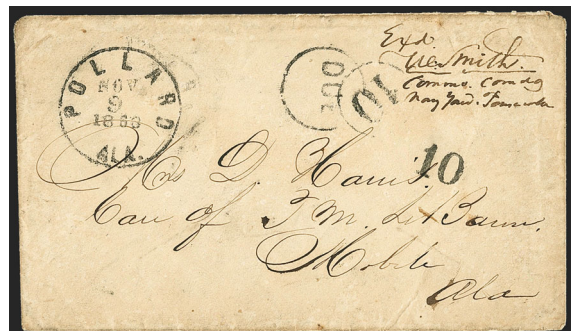 POLLARD
NOV
9
1863
ALA.
DUE
10
Exd
W. Smith.
Comm. Comdg
Navy Yard. Pensacola
10
Mrs D. Harris.
Care of T. M. Le Baron.
Mobile
Ala